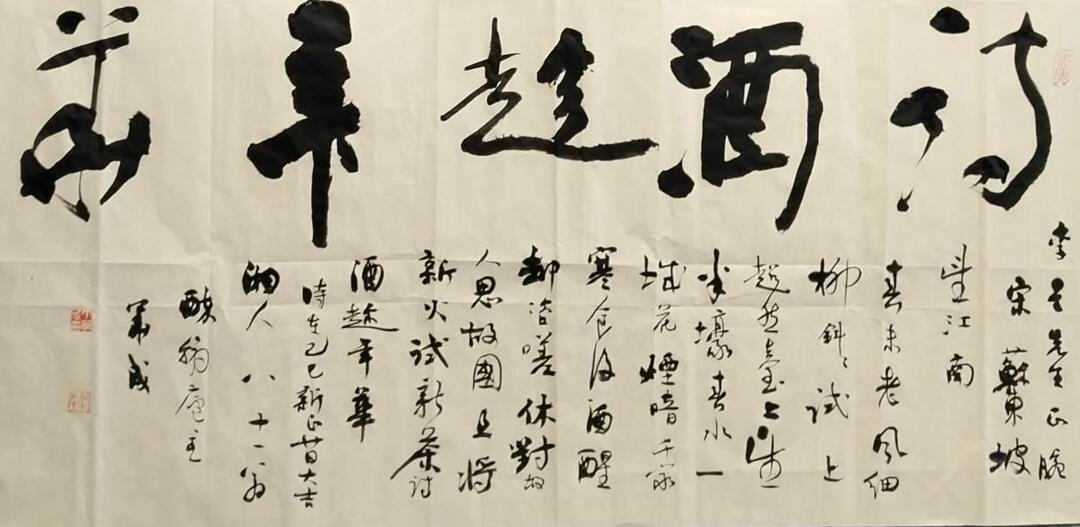 詩酒趁年華
李
先生正腕
宋 蘇東坡
望江南
春未老風細
柳斜斜試上
超然臺上
半壕春水一
城花煙暗千家
寒食後酒醒
卻咨嗟休對故
人思故國且將
新火試新茶詩
酒趁年華
時在乙巳新正 大吉
湘人八十一翁
醉翁廬主